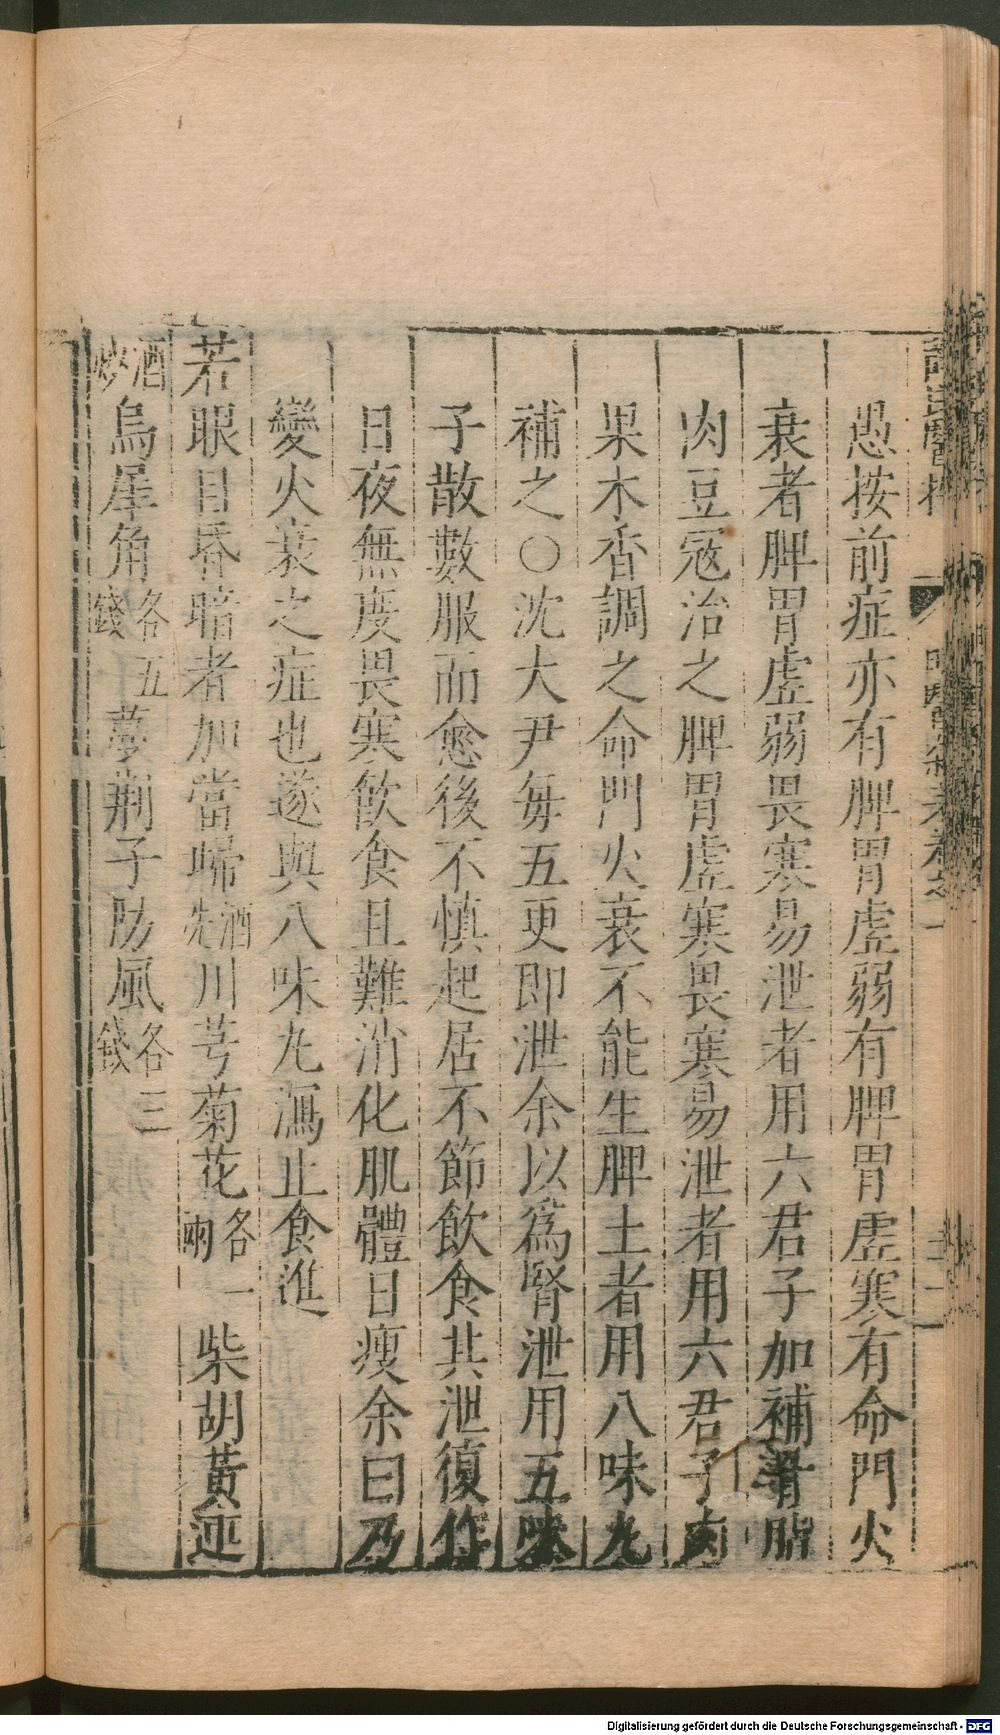 愚按前症亦有脾胃虛弱有脾胃虛寒有命門火
衰者脾胃虛弱畏寒易泄者用六君子加補骨脂
肉豆寇治之脾胃虛寒畏寒易泄者用六君子肉
果木香調之命門火衰不能生脾土者用八味丸
補之〇沈大尹每五更即泄余以爲腎泄用五味
子散數服而愈後不慎起居不節飲食其泄復作
日夜無度畏寒飲食且難消化肌體日瘦余曰乃
變火衰之症也遂與八味丸瀉止食進
若眼目昏暗者加當歸酒洗川芎菊花各一兩柴胡黃連
酒炒烏犀角各五錢蔓荆子防風各三錢
Digitalisierung gefördert durch die Deutsche Forschungsgemeinschaft - DFG